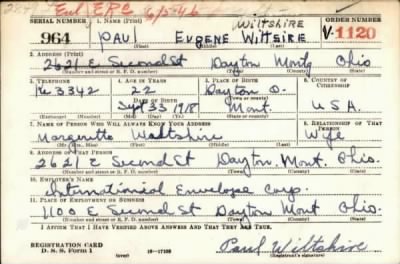 Enl ERC 6/5-46 Wiltshire
SERIAL NUMBER 1. NAME (Print) ORDER NUMBER
964 PAUL EUGENE WILTSIRE V-1120
(First) (Middle) (Last)
2. ADDRESS (Print)
2621 E Second St Dayton Montg Ohio
(Number and street or R. F. D. number) (Town) (County) (State)
3. TELEPHONE 4. AGE IN YEARS 5. PLACE OF BIRTH 6. COUNTRY OF CITIZENSHIP
Ke 3342 22 Dayton O.
DATE OF BIRTH
Sept 23 1918 Mont. U.S.A.
(Exchange) (Number) (Mo.) (Day) (Yr.) (State or country)
7. NAME OF PERSON WHO WILL ALWAYS KNOW YOUR ADDRESS 8. RELATIONSHIP OF THAT PERSON
Marguerite Wiltshire Wife
(Mr., Mrs., Miss) (First) (Middle) (Last)
9. ADDRESS OF THAT PERSON
2621 E Second St Dayton, Mont. Ohio.
(Number and street or R. F. D. number) (Town) (County) (State)
10. EMPLOYER'S NAME
International Envelope Corp.
11. PLACE OF EMPLOYMENT OR BUSINESS
1100 E Second St Dayton Mont Ohio.
(Number and street or R. F. D. number) (Town) (County) (State)
I AFFIRM THAT I HAVE VERIFIED ABOVE ANSWERS AND THAT THEY ARE TRUE.
REGISTRATION CARD
D. S. S. Form 1 (over) 16-17105 Paul Wiltshire
(Registrant's signature)